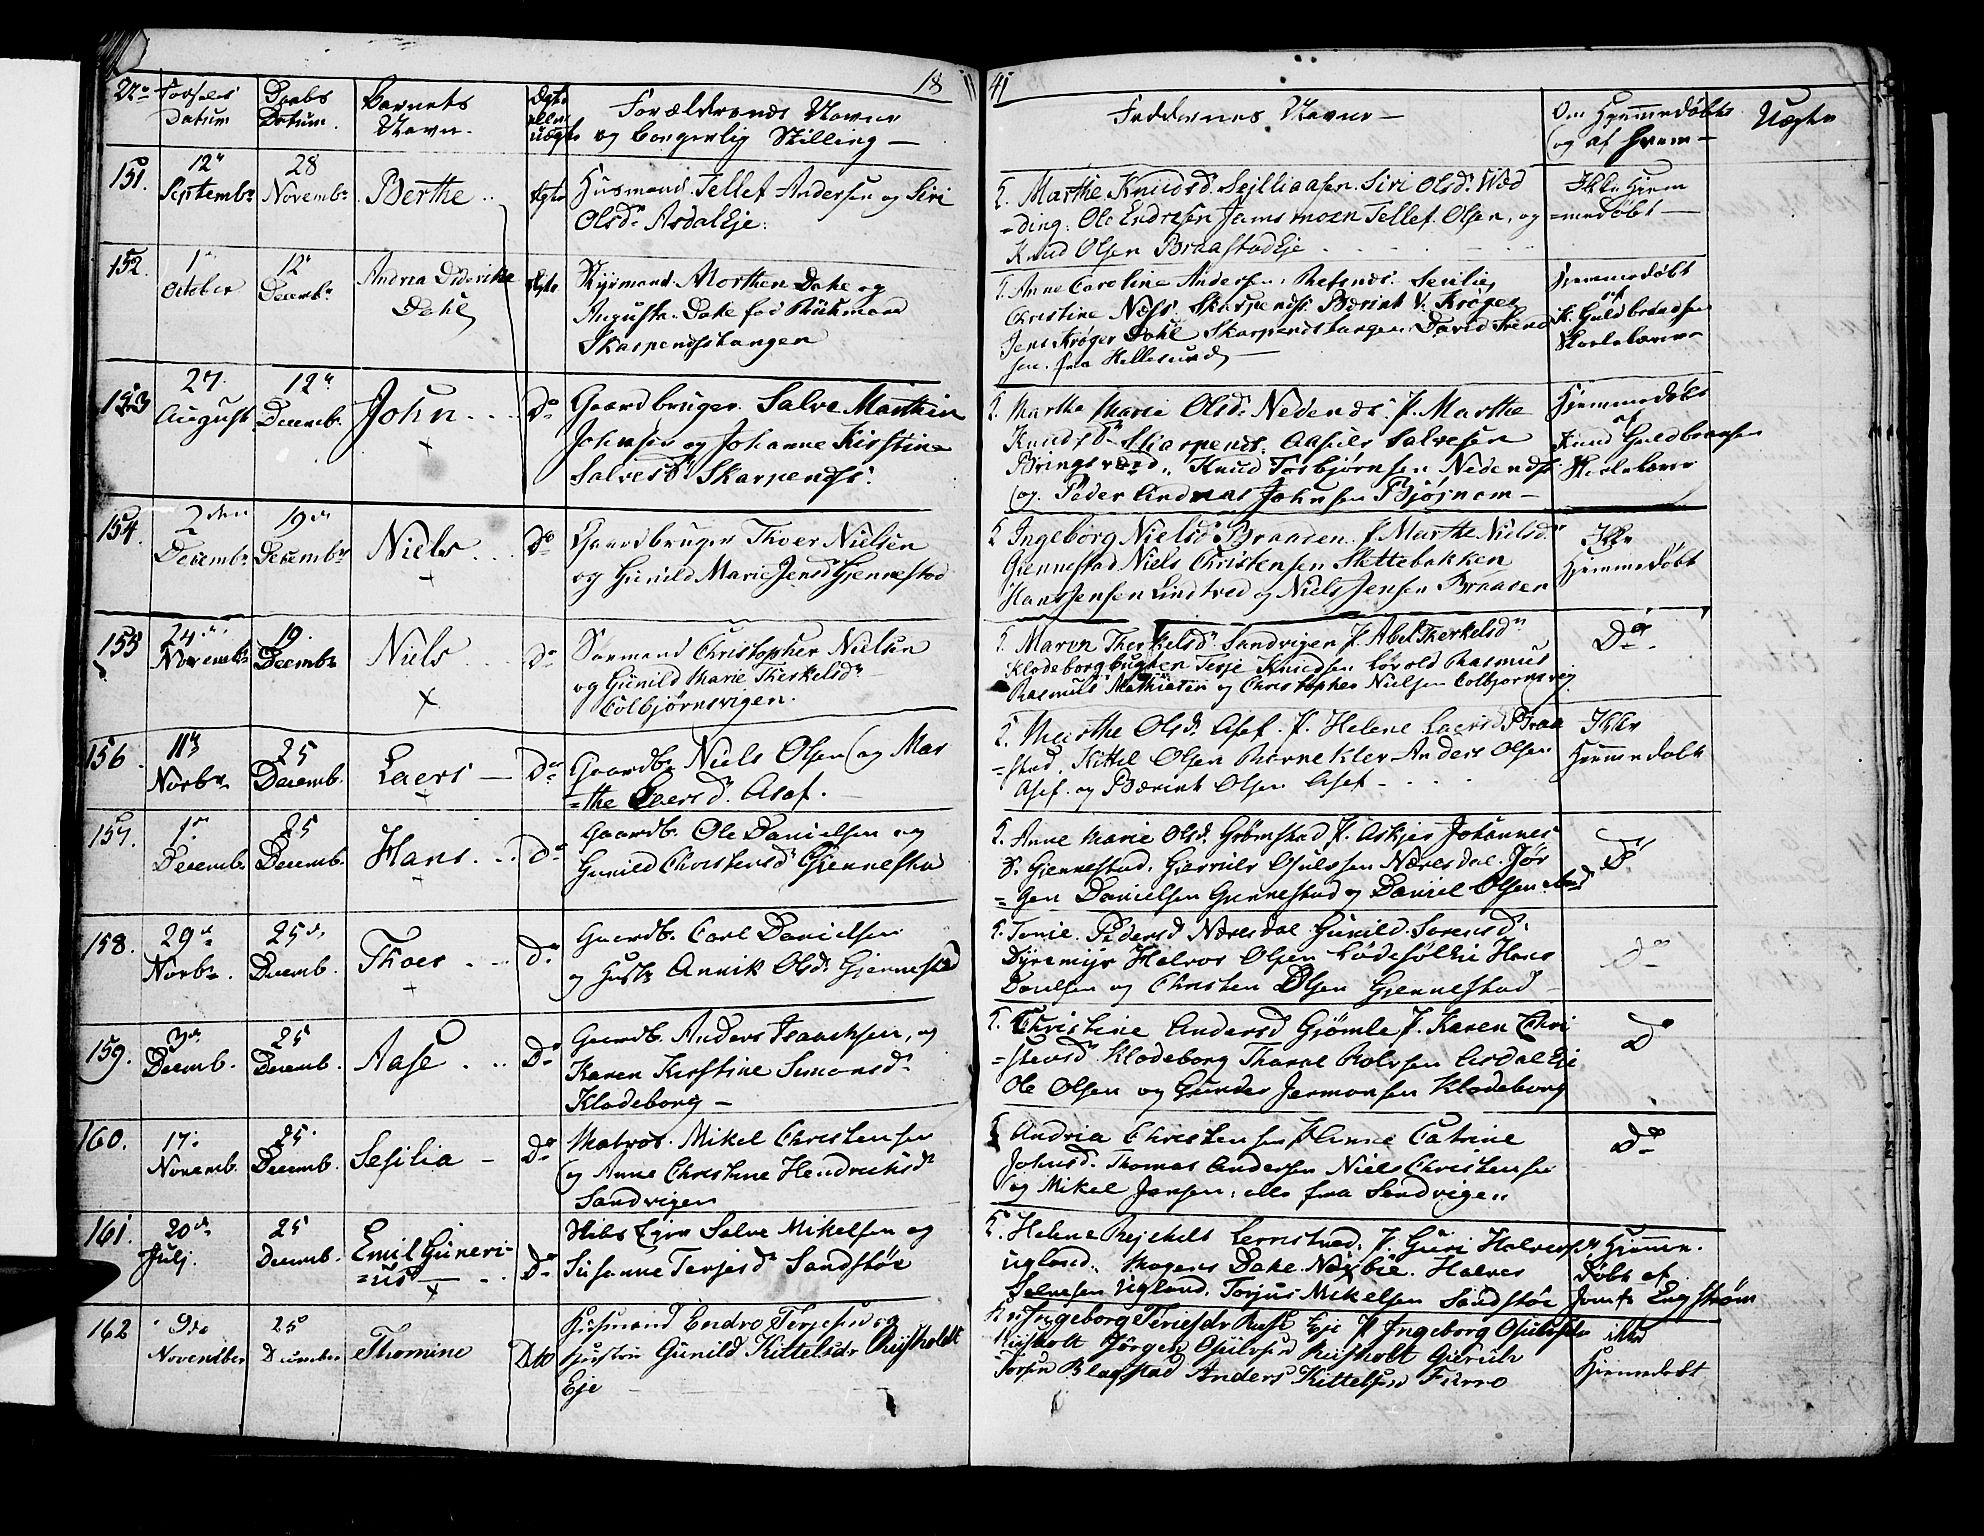 18 41
No Fødsels Datum
Daabs Datum.
Barnets Navn.
Ægte eller uægte
Forældrenes Navne og borgerlig Stilling —
Faddernes Navne —
Om Hjemmedøbte og af hvem —
Uægte
151. 12te Septembr 28 Novembr Berthe Ægte
Husmand Tellef Andersen og Siri
Olsd. AsdalEje.
F. Marthe Knudsd. Siri Olsd. Wed
=ding. Ole Endresen Jamsmoen Tellef Olsen, og
Knud Olsen BraastadEje
Ikke Hjem
=medøbt —
152. 1 October 12te Decembr Andrea Diderikke Dahl Ægte
Styrmand Morthen Dahl og
Augusta Dahl
Skarpendstangen
F. Anne Caroline Andersen Sesilie
Christine Næss. Skarpends. Berint V. Krøger
Jens Krøger Dahl Skarpendstangen David Svend
sen. fra Hellesund
Hjemmedøbt
af
K. Guldbrandsen
Skolelærer
153 27. August 12te Decemb. John Do
Gaardbruger Salve Marthin
Johnsen og Johanne Kirstine
Salvesdr Skarpends.
F. Marthe Marie Olsd. Nedends. F. Marthe
Knudsd. Skarpends. Salvesen
Bringsværd. Knud Torbjørnsen Nedends.
og Peder Andreas Johnsen Bjøjnem —
Hjemmedøbt
af
Knud Guldbransen
Skolelærer
154. 2den Decembr 19de Decembr Niels Do
Gaardbruger Thoer Nielsen
og Gunild Marie Jensd Gjennestad
F Ingeborg Nielsd Braaden. F Marthe Nielsd.
Gjennestad Niels Christensen Slettebakken
Hans Jensen Lindtved og Niels Jensen Braaden
Ikke
Hjemmedøbt
155 24. Novembr 19. Decembr Niels Do
Sømand Christopher Nielsen
og Gunild Marie Therkelsdr
Colbjørnsvigen.
F. Maren Therkelsdr Sandvigen F. Abel Therkelsdr
Klodeborgbugten Terje Knudsen Løvold Rasmus
Rasmus Mathiesen og Christopher Nielsen Colbjørnsvig
Do
156. 11te Novbr 25 Decemb. Laers — Do
Gaardb. Niels Olsen og Mar
=the Laersd. Asef.
F. Marthe Olsd. Asef. F. Helene Laersd. Braa
=stad. Kittel Olsen Barnekler Anders Olsen
Asef. og Berint Olsen Asef —
Ikke
Hjemmedøbt
157. 1ste Decemb. 25 Decemb. Hans Do
Gaardb. Ole Danielsen og
Gunild Christensdr Gjennestad
F. Anne Marie Olsd. Grømstad F. Askjer Johannes
D. Gjennestad. Osulssen Næresdal. Jør
=gen Danielsen Gjennestad og Daniel Olsen
Do
158. 29de Novbr. 25de Decemb. Thoer Do
Gaardb. Carl Danielsen
og Hustr. Annik Olsd. Gjennestad
F. Tonie Pedersd Næresdal. Gunild Sørensd.
Dyremyr Halvor Olsen Hans
Danielsen og Christen Olsen Gjennestad
Do
159. 3de Decemb. 25 Decemb. Aase Do
Gaardb. Anders Isaacksen, og
Karen Kirstine Simonsd.
Klodeborg —
F. Christine Andersd Gjømle F. Karen Chri
=stensd. Klodeborg Tharal Rolvsen AsdalEje
Ole Olsen og Gunder Jermansen Klodeborg
Do
160. 17. Novemb. 25 Decemb. Sesilia — Do
Matros. Mikel Christensen
og Anne Christine Hendriksdr
Sandvigen
F Andria Christensen F. Anne Catrine
Johnsd. Thomas Andersen Niels Christensen
og Mikel Jensen, alle fra Sandvigen
Do
161. 20de Julj. 25 Decemb. Emil Guneri=us — Do
Salve Mikelsen og
Susanne Terjesdr Sandstøe
F. Helene F. Guri Halvorsdr
Ugland. Mogens Dahl. Næsbie. Halvor
Salvesen Ugland. Torjus Mikelsen Sandstøe
Hjemme
døbt af
Jomfr. Engstrøm
162 9de November 25 December Thomine Do
Husmand Endre Terjesen og
Hustru Gunild Kittelsdr Rissholdt
Eje
F. Ingeborg Eje F Ingeborg Osulsdr
Rissholt Jørgen Osulsen Rissholt Gjeruls
Blagstad Anders Kittelsen
ikke
Hjemmedøbt